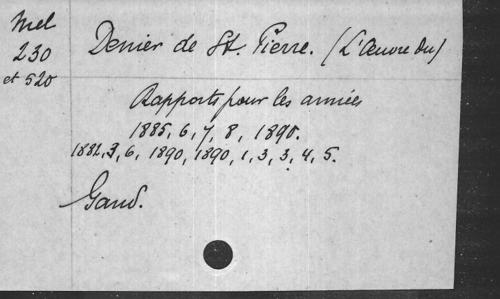 Mel
230
et 520
Denier de St. Pierre. (L'Œuvre du)
Rapports pour les années
1885, 6, 7, 8, 1890.
1882, 3, 6, 1890, 1890, 1, 3, 3, 4, 5.
Gand.